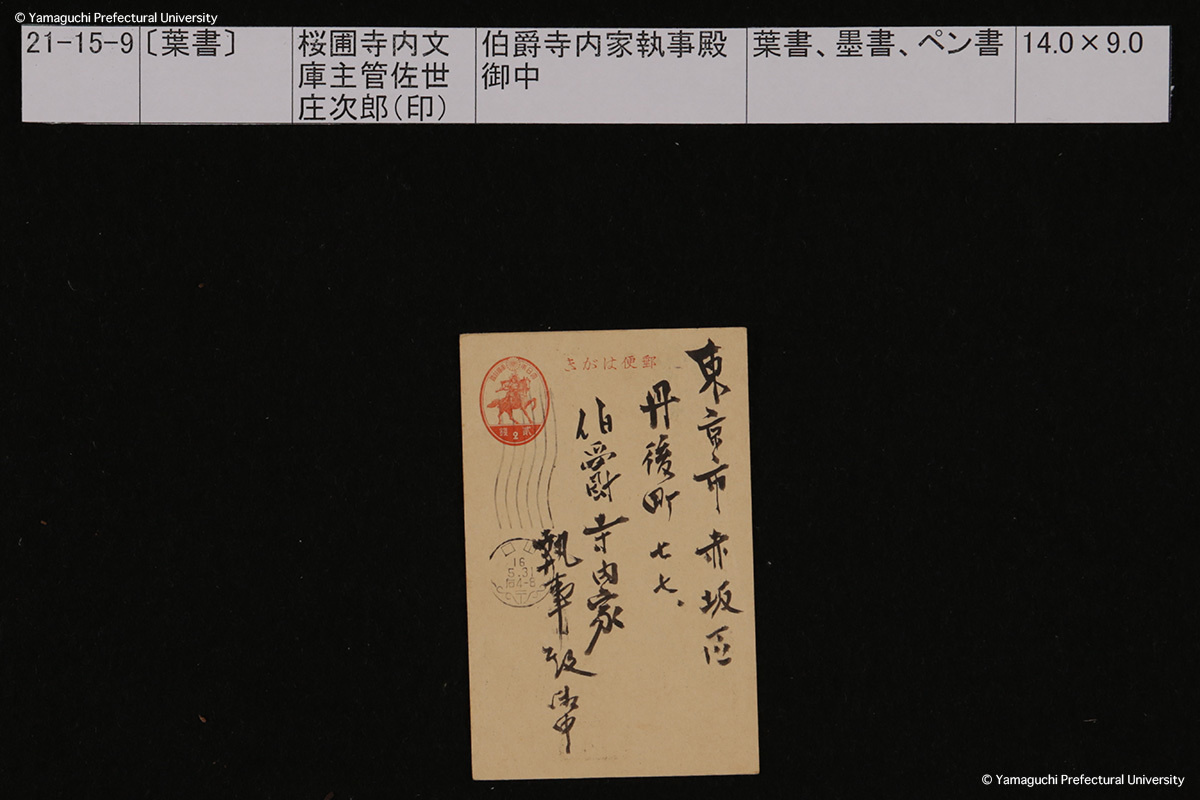 © Yamaguchi Prefectural University
21-15-9
〔葉書〕
桜圃寺内文
庫主管佐世
庄次郎(印)
伯爵寺内家執事殿
御中
葉書、墨書、ペン書
14.0×9.0
郵便はがき
東京市赤坂區
丹後町七七、
伯爵寺内家
執事殿御中
16
5.31
© Yamaguchi Prefectural University